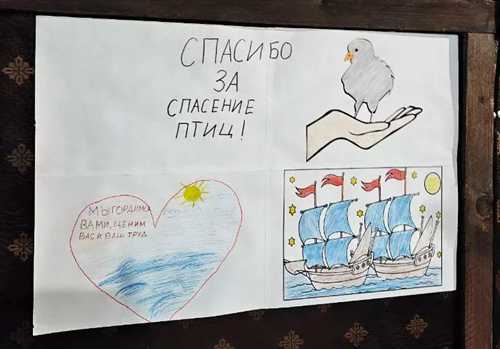 СПАСИБО
ЗА
СПАСЕНИЕ
ПТИЦ!
МЫ ГОРДИМСЯ
ВАМИ, ЦЕНИМ
ВАС И ВАШ ТРУД